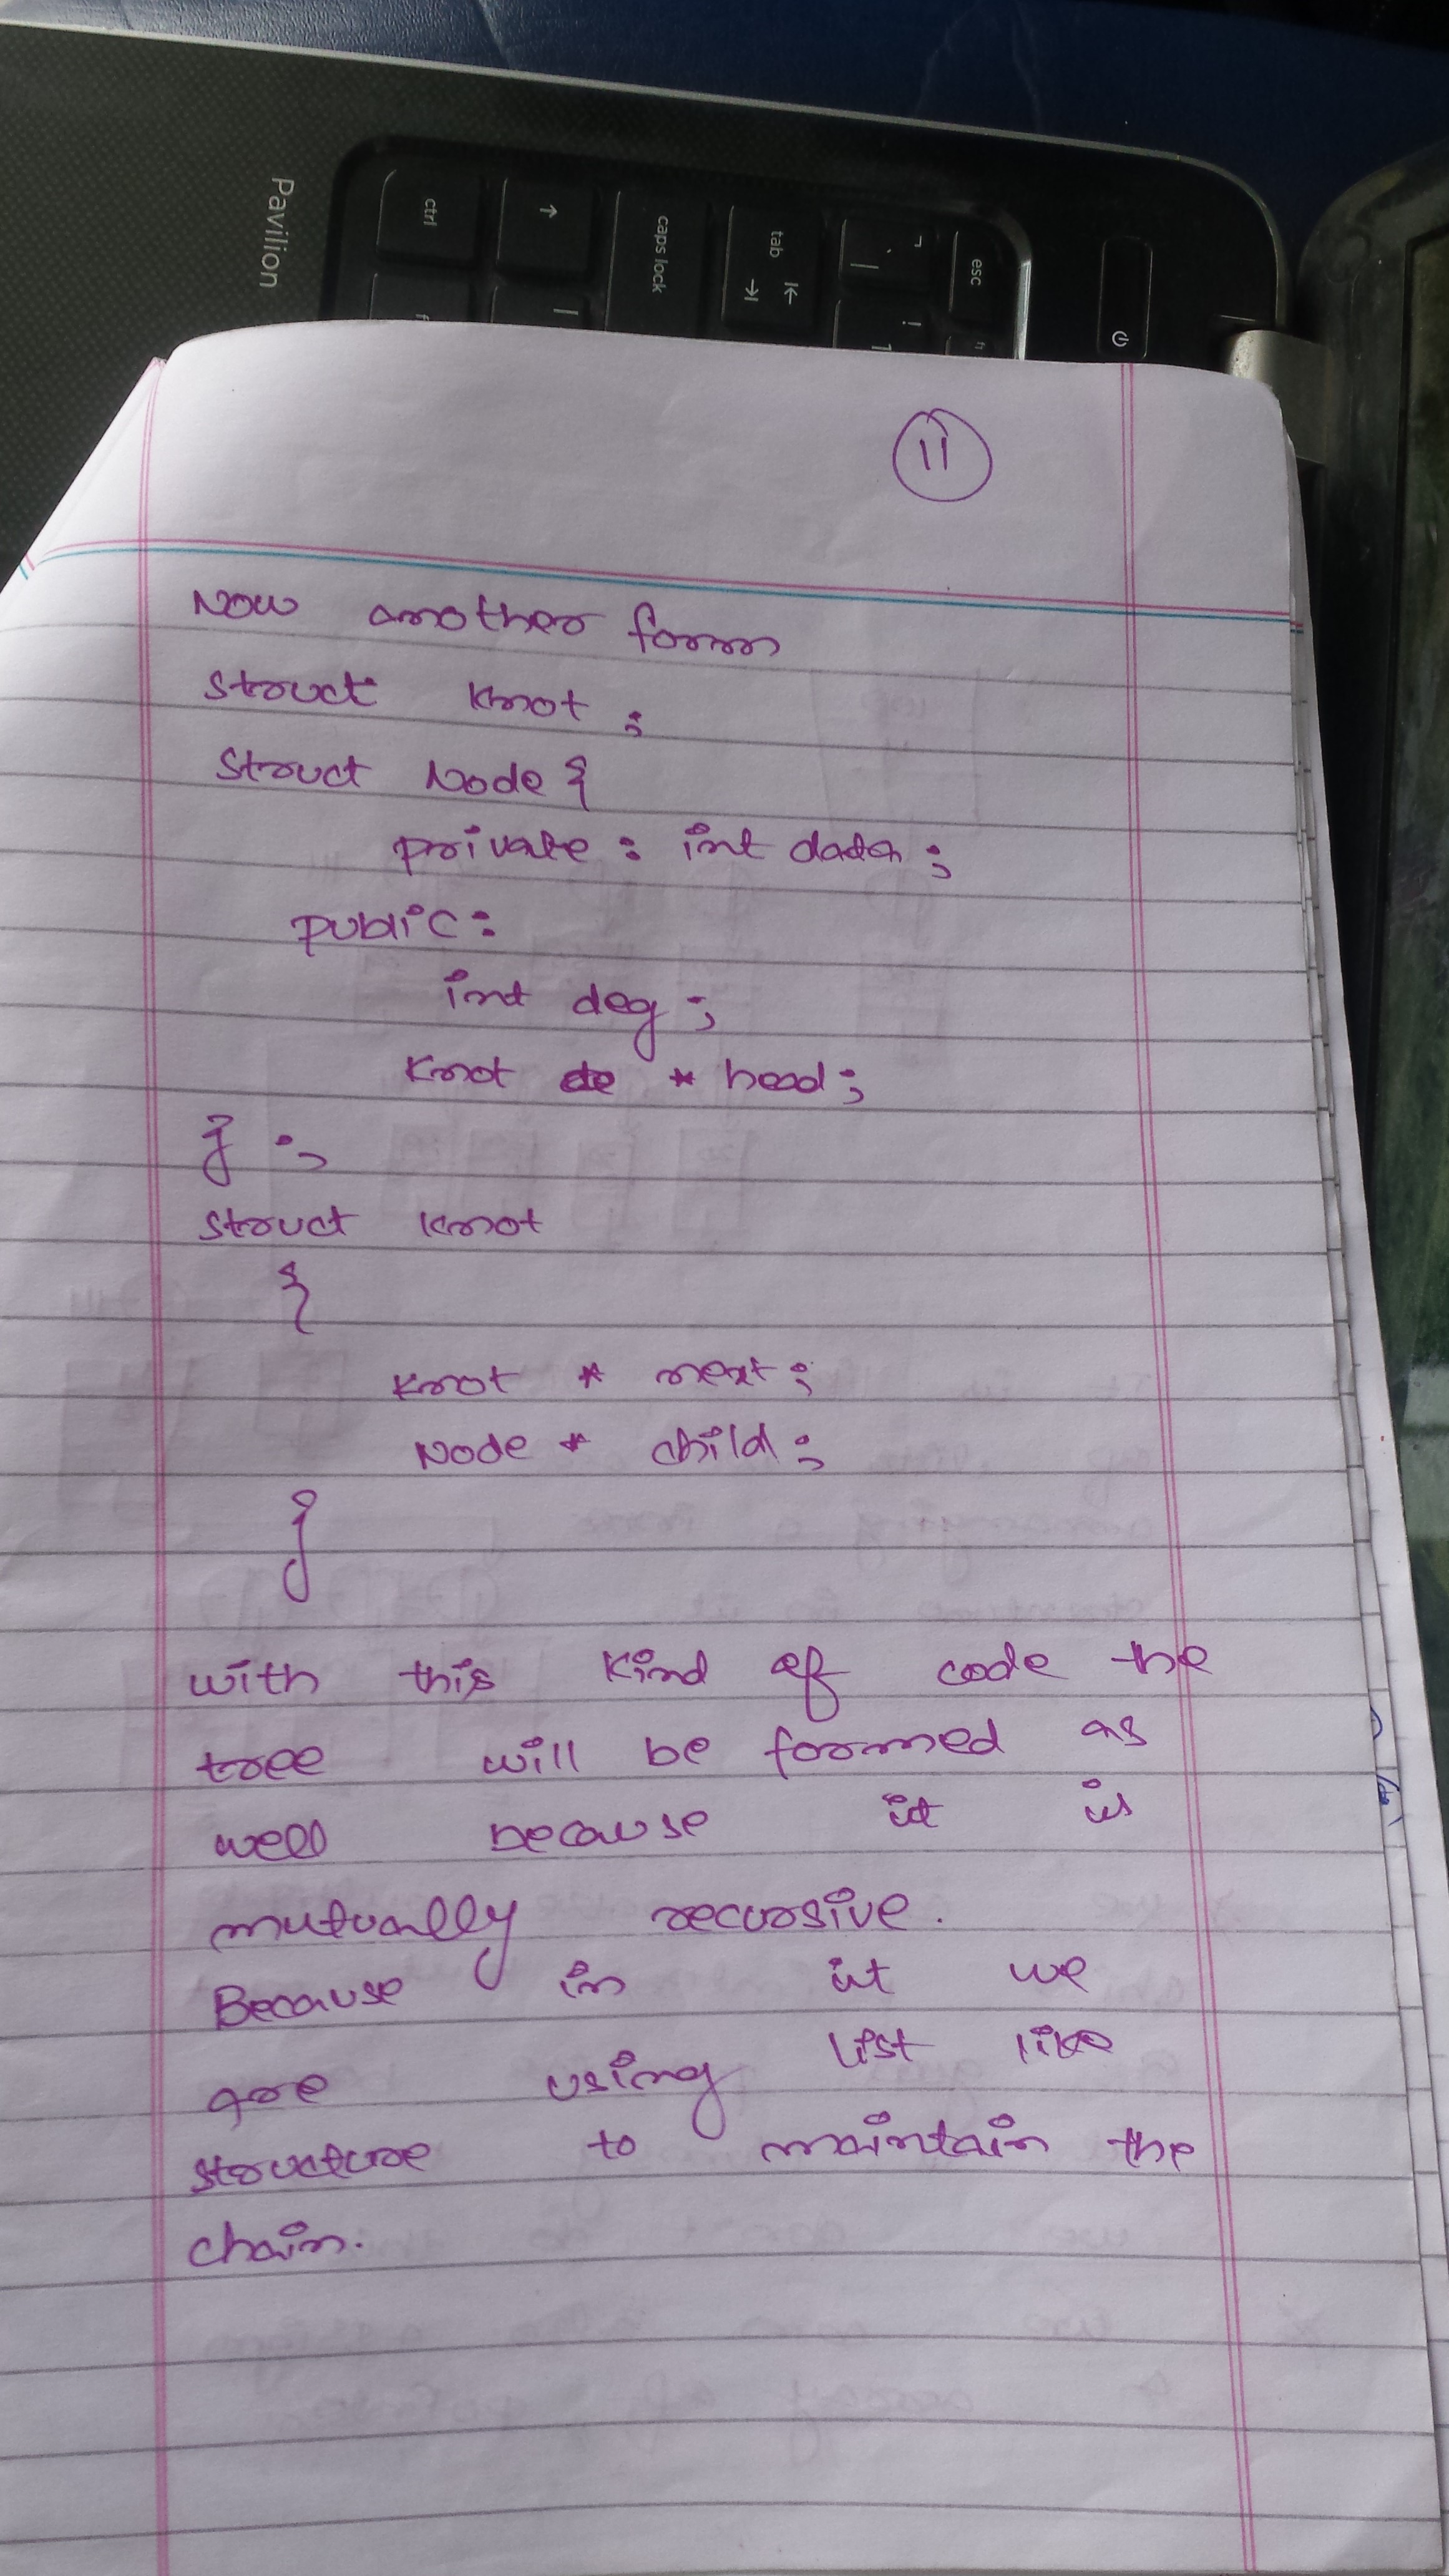 Pavilion
ctrl
caps lock
tab
esc
!
1
11
Now another form
struct Knot ;
struct Node {
private : int data ;
public :
int deg ;
Knot * head ;
} ;
struct Knot
{
Knot * next ;
Node * child ;
}
with this kind of code the
tree will be formed as
well because it is
mutually recursive.
Because in it we
are using list like
structure to maintain the
chain.